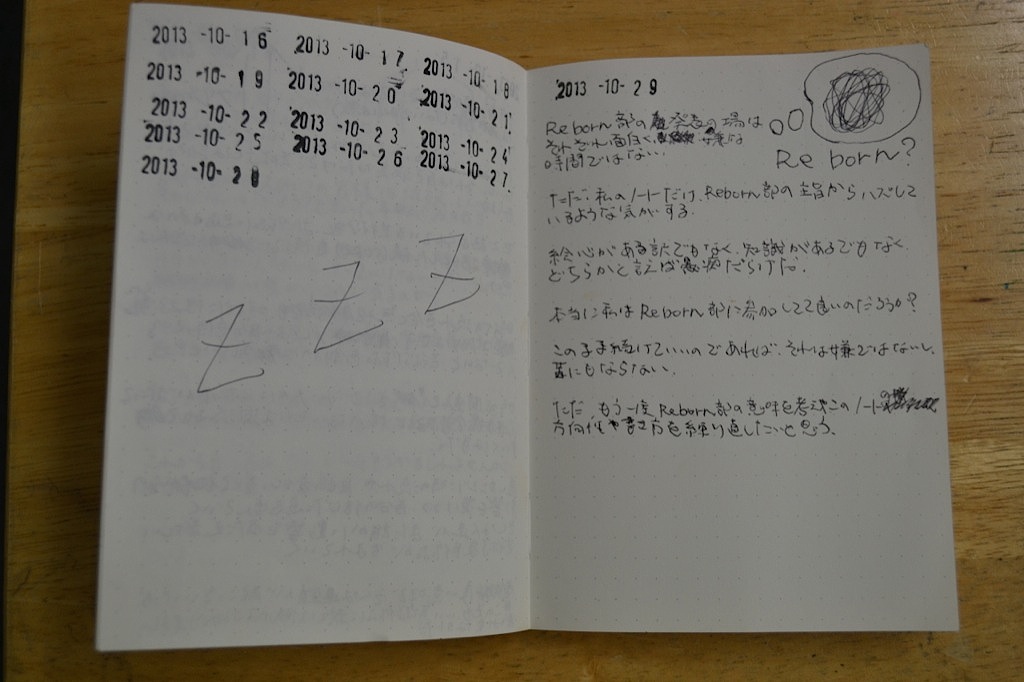 2013 -10- 16 2013 -10- 17 2013 -10- 18
2013 -10- 19 2013 -10- 20 2013 -10- 21
2013 -10- 22 2013 -10- 23 2013 -10- 24
2013 -10- 25 2013 -10- 26 2013 -10- 27
2013 -10- 28
Z Z Z
2013 -10- 29
Reborn?
Reborn部の発表の場は
それぞれ面白く、嫌な
時間ではない。
ただ、私のノートだけ、Reborn部の主旨からハズレて
いるような気がする。
絵心がある訳でもなく、知識があるでもなく、
どちらかと言えば だらけだ。
本当に私はReborn部に参加してて良いのだろうか?
このまま続けていいのであれば、それは嫌ではないし、
苦にもならない。
ただ、もう一度Reborn部の意味を考えこのノートの
方向性や書き方を練り直したいと思う。